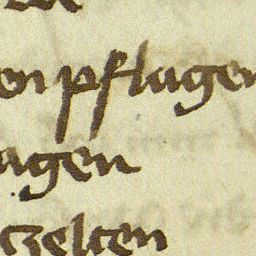 en pflagen
agen
czelten